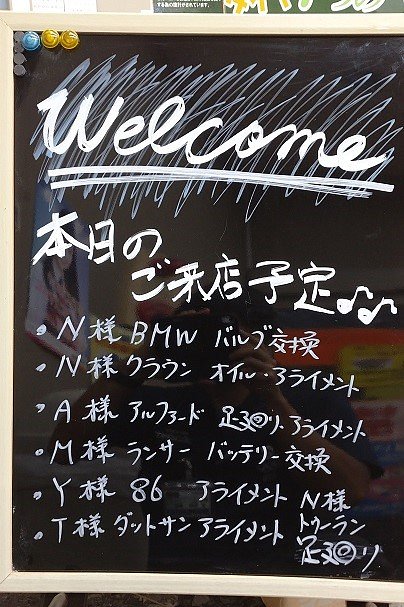 Welcome
本日の
ご来店予定♪♫
・N様 BMW バルブ交換
・N様 クラウン オイル・アライメント
・A様 アルファード 足廻り・アライメント
・M様 ランサー バッテリー交換
・Y様 86 アライメント
・T様 ダットサン アライメント
N様
トゥーラン
足廻り